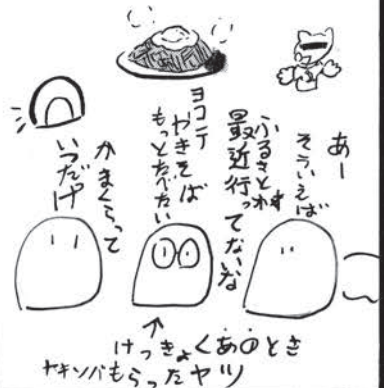 あー
そういえば
ふるさと村
最近行ってないな
ヨコテ
やきそば
もっとたべたい
かまくらって
いつだけ
↑
けっきょくあのとき
ヤキソバもらったヤツ